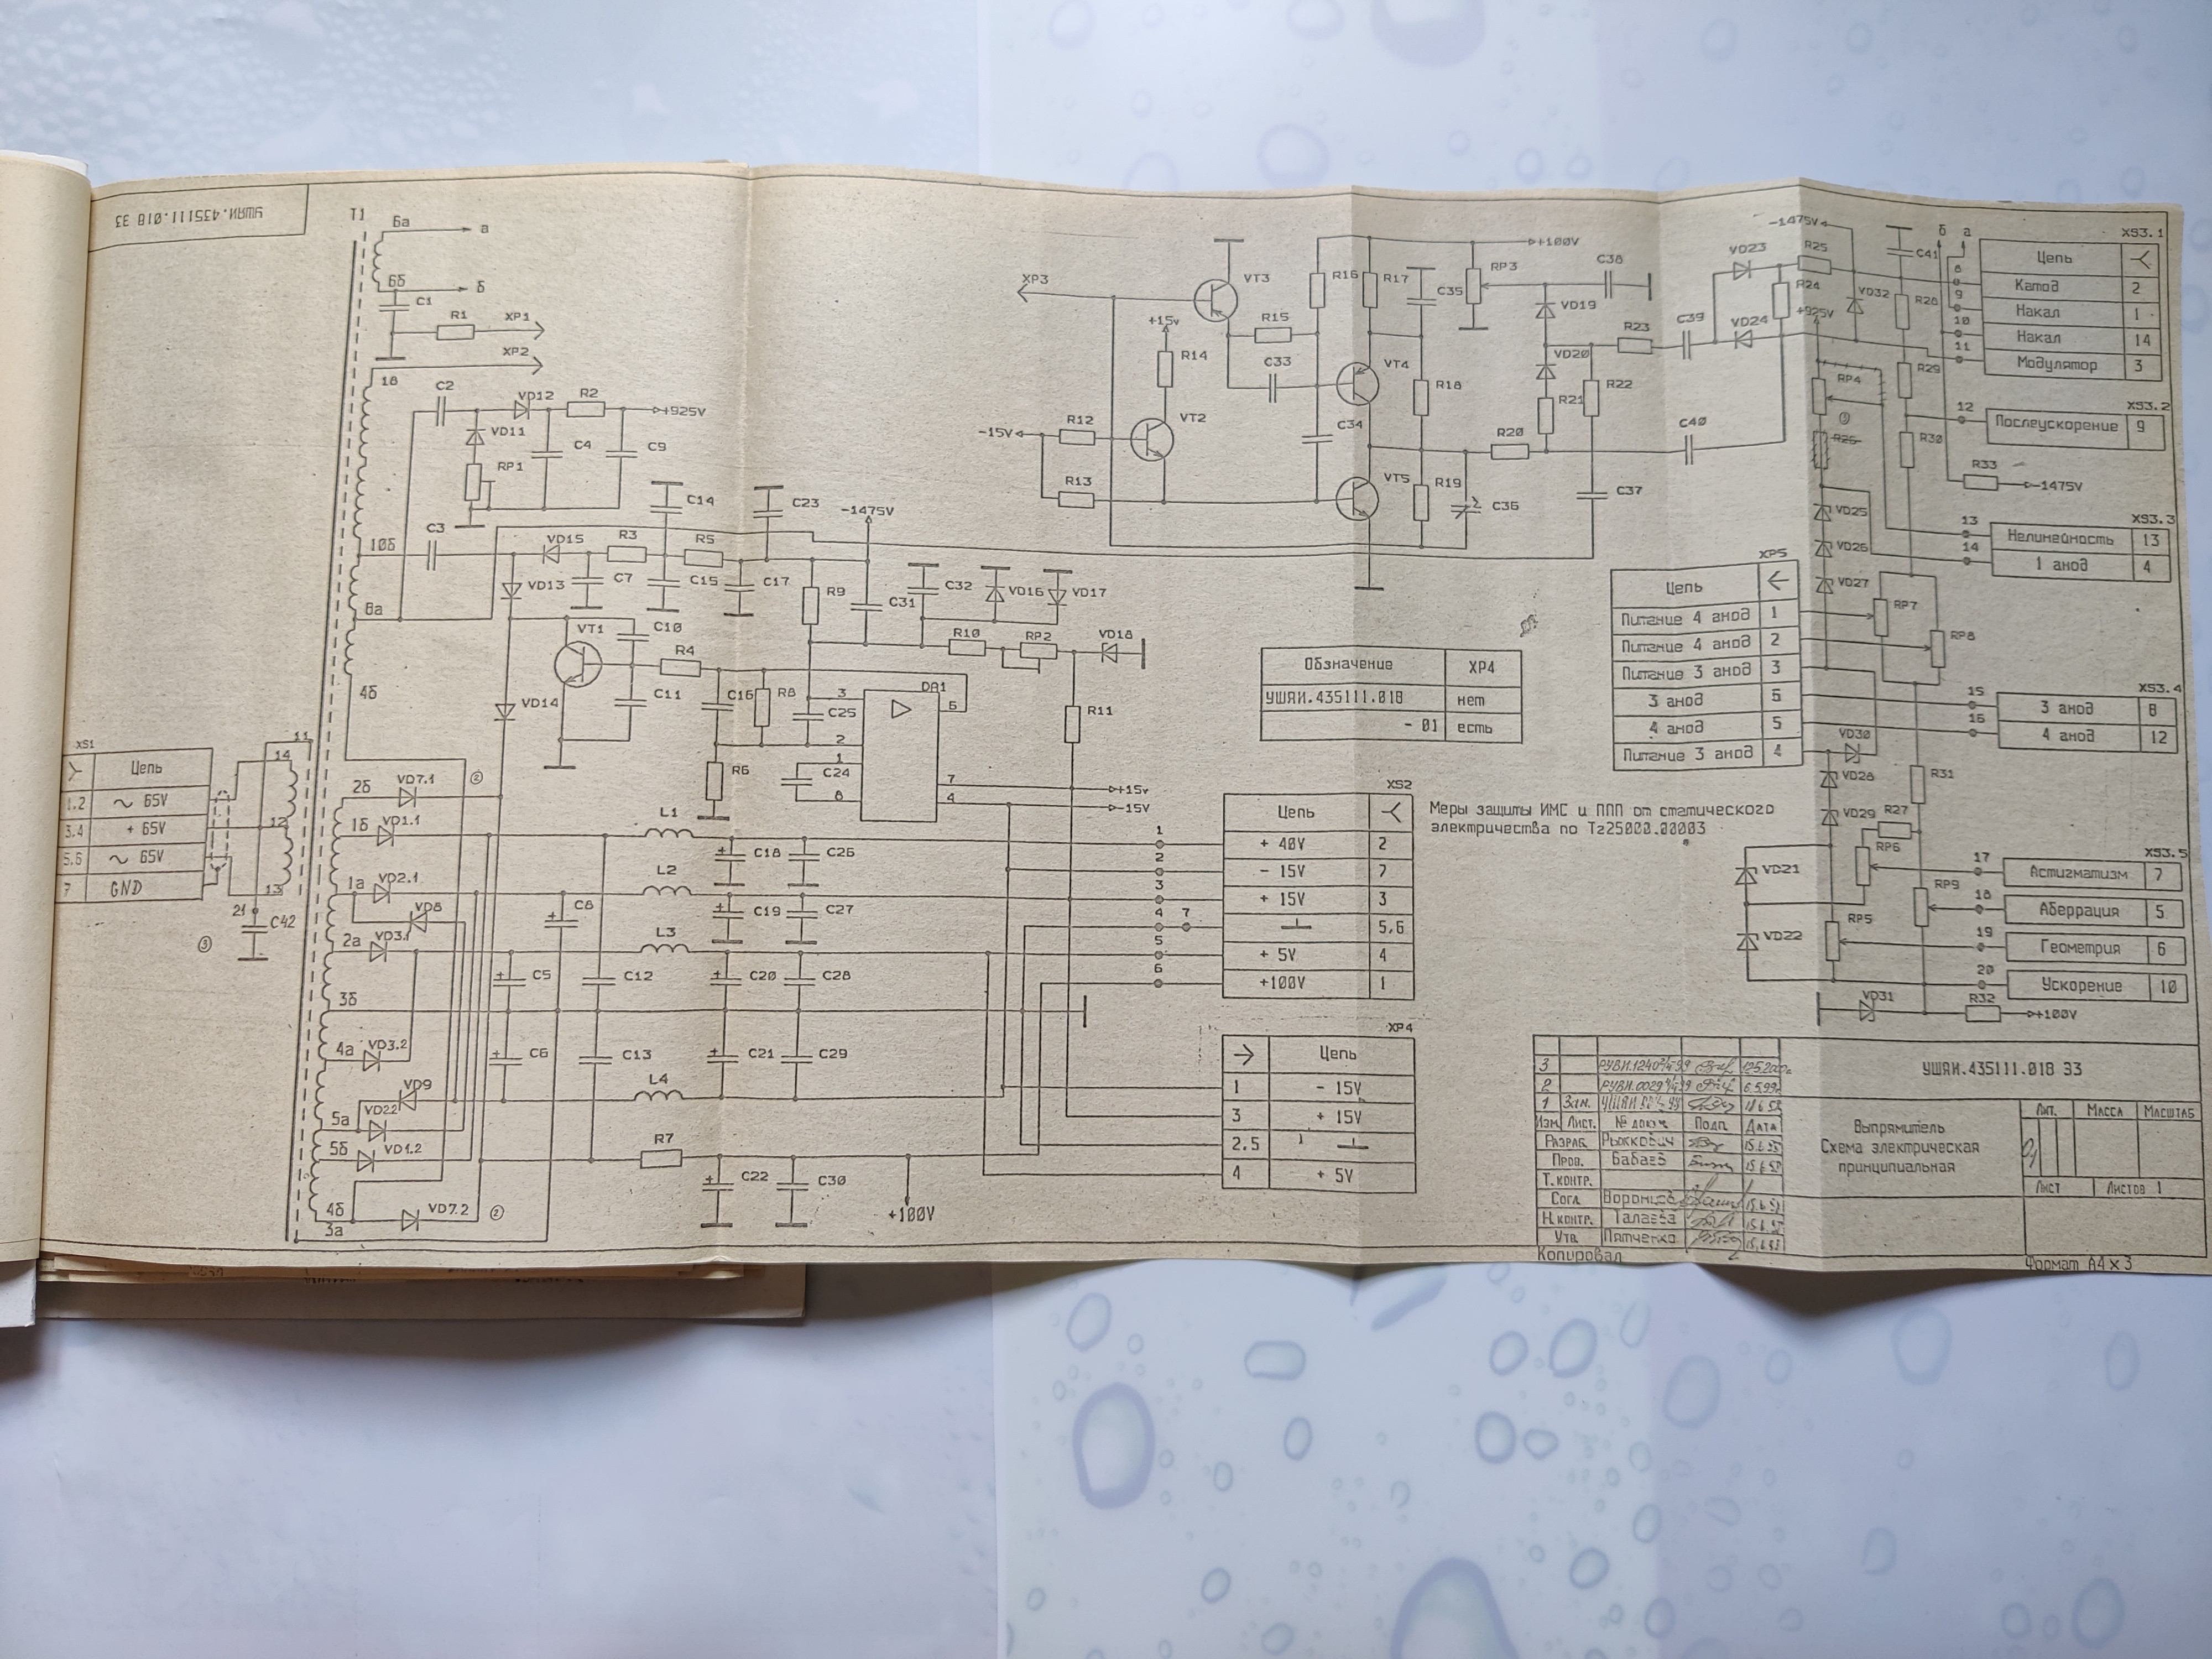 УШЯИ.435111.018 ЭЗ
T1
6а
а
6б
б
C1
R1
XP1
XP2
1в
C2
VD12
R2
+925V
VD11
C4
C9
RP1
C14
C23
-1475V
10б
C3
VD15
R3
R5
VD13
C7
C15
C17
R9
C31
C32
VD16
VD17
8а
VT1
C10
R4
R10
RP2
VD18
4б
VD14
C11
C16
R8
C25
3
DA1
6
2
R11
R6
1
C24
8
7
4
+15v
-15V
XS1
Цепь
1.2
~ 65V
3,4
+ 65V
5,6
~ 65V
7
GND
11
14
12
13
21
C42
③
2б
VD7.1
②
1б
VD1.1
L1
C18
C26
1а
VD2.1
L2
VD8
C8
C19
C27
2а
VD3.1
L3
C5
C12
C20
C28
3б
4а
VD3.2
C6
C13
C21
C29
VD9
L4
5а
VD22
5б
VD1.2
R7
C22
C30
4б
VD7.2
②
3а
+100V
XP3
VT3
R16
R17
C35
RP3
+100V
C38
+15v
R15
VD19
R14
C33
VT4
VD20
R23
C39
VD23
VD24
R25
R24
-1475V
+925V
VD32
-15V
R12
VT2
C34
R18
R21
R22
R13
VT5
R19
C36
R20
C40
C37
C41
R28
R29
R30
б
а
R33
-1475V
RP4
③
R26
VD25
VD26
VD27
RP7
RP8
XS3.1
Цепь
8
Катод
2
9
Накал
1
10
Накал
14
11
Модулятор
3
XS3.2
12
Послеускорение
9
XS3.3
13
Нелинейность
13
14
1 анод
4
XP5
Цепь
Питание 4 анод
1
Питание 4 анод
2
Питание 3 анод
3
3 анод
6
4 анод
5
Питание 3 анод
4
XS3.4
15
3 анод
8
16
4 анод
12
VD30
VD28
VD29
R27
R31
RP6
VD21
RP9
RP5
VD22
VD31
R32
+100V
XS3.5
17
Астигматизм
7
18
Аберрация
5
19
Геометрия
6
20
Ускорение
10
Обзначение
XP4
УШЯИ.435111.018
нет
- 01
есть
Меры защиты ИМС и ППП от статического
электричества по Тг25000.00003
XS2
Цепь
1
+ 40V
2
2
- 15V
7
3
+ 15V
3
4
7
5,6
5
+ 5V
4
6
+100V
1
XP4
Цепь
1
- 15V
3
+ 15V
2.5
4
+ 5V
3
РУВИ.1240
2
РУВИ.0029
1
Зам.
Изм.
Лист.
№ докум
Подп
Дата
Разраб.
Рыжкович
Пров.
Бабаев
Т.контр.
Согл
Воронцов
Н.контр.
Талаева
Утв
Пятченко
Копировал
УШЯИ.435111.018 ЭЗ
Выпрямитель
Схема электрическая
принципиальная
Лит.
Масса
Масштаб
Лист
Листов 1
Формат А4×3